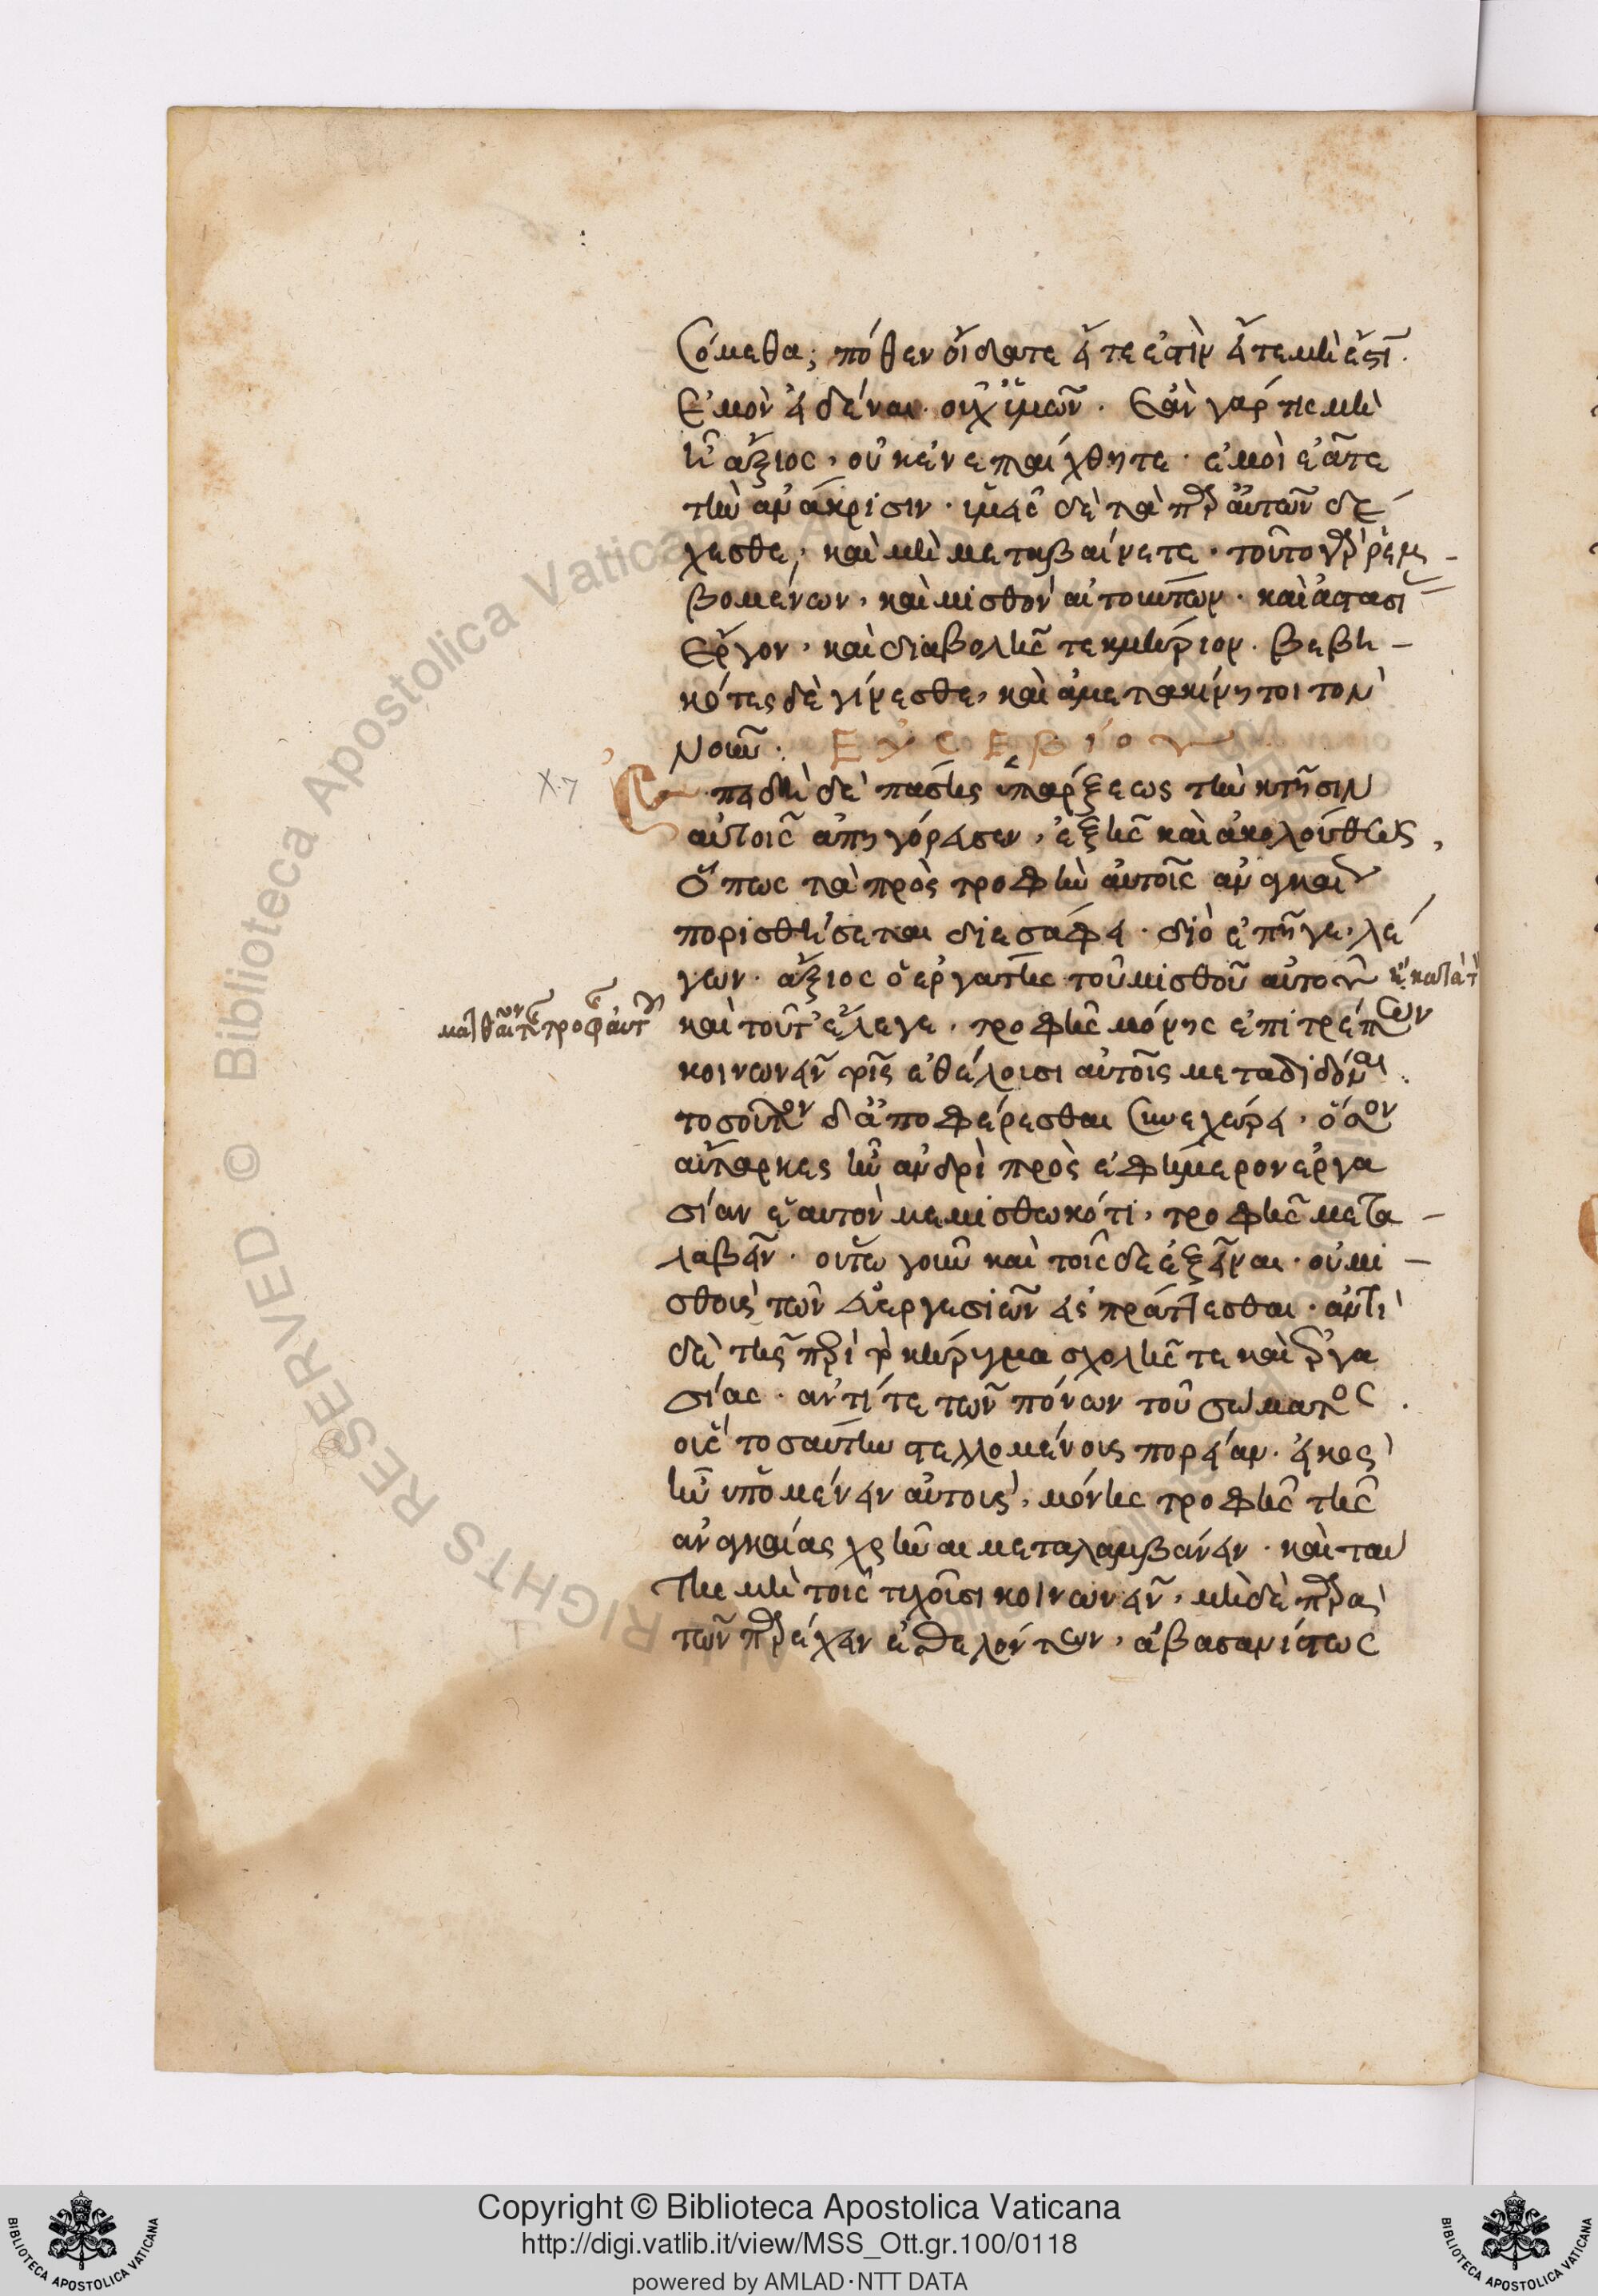 σόμεθα; πόθεν οἴδατε εἴτε ἐστὶν εἴτε μὴ ἔστι.
Ἐμὸν εἰδέναι. οὐχ ὑμῶν. Ἐὰν γάρ τις μὴ
ἦ ἄξιος, οὐκ ἐνεπαίχθητε. ἐμοὶ ἐᾶτε
τὴν ἀνάκρισιν. ὑμεῖς δὲ τὰ παρ' αὐτῶν δέ
χεσθε, καὶ μὴ μεταβαίνετε. τοῦτο γὰρ ῥεμ-
βομένων, καὶ μισθὸν αἰτούντων. καὶ ἀστασί
ἔργον, καὶ διαβολῆς τεκμήριον. βεβη-
κότες δὲ γίνεσθε, καὶ ἀμετακίνητοι τὸν
νοῦν. ΕΥΣΕΒΙΟΥ
Χ.7 Ἐπειδὴ δὲ πάσης ὑπάρξεως τὴν κτῆσιν
αὐτοῖς ἀπηγόρευσεν, ἑξῆς καὶ ἀκολούθως,
ὅπως τὰ πρὸς τροφὴν αὐτοῖς ἀναγκαῖα
πορισθήσεται διεσάφει. διὸ ἐπῆγε, λέ
γων. ἄξιος ὁ ἐργάτης τοῦ μισθοῦ αὐτοῦ
καὶ τοῦτ' ἔλεγε, τροφῆς μόνης ἐπιτρέπων
κοινωνεῖν τοῖς ἐθέλουσι αὐτοῖς μεταδιδόναι.
τοσοῦτον δ' ἀποφέρεσθαι συνεχώρει, ὅσον
αὔταρκες ἦν ἀνδρὶ πρὸς ἐφήμερον ἐργα
σίαν ἑαυτὸν μεμισθωκότι, τροφῆς μετα-
λαβεῖν. οὕτω γοῦν καὶ τοῖσδε ἐξεῖναι. οὐ μι-
σθοὺς τῶν εὐεργεσιῶν εἰσπράττεσθαι. ἀντὶ
δὲ τῆς περὶ τὸ κήρυγμα σχολῆς τε καὶ ἐργα
σίας. ἀντί τε τῶν πόνων τοῦ σώματος.
οἷς τοσαύτην στελλομένοις πορείαν. εἰκὸς
ἦν ὑπομένειν αὐτούς, μόνης τροφῆς τῆς
ἀναγκαίας χρῆναι μεταλαμβάνειν. καὶ ταύ
της μὴ τοῖς τυχοῦσι κοινωνεῖν, μηδὲ παρὰ
τῶν παρέχειν ἐθελόντων, ἀβασανίστως
Copyright © Biblioteca Apostolica Vaticana
http://digi.vatlib.it/view/MSS_Ott.gr.100/0118
powered by AMLAD·NTT DATA
BIBLIOTECA APOSTOLICA VATICANA
BIBLIOTECA APOSTOLICA VATICANA